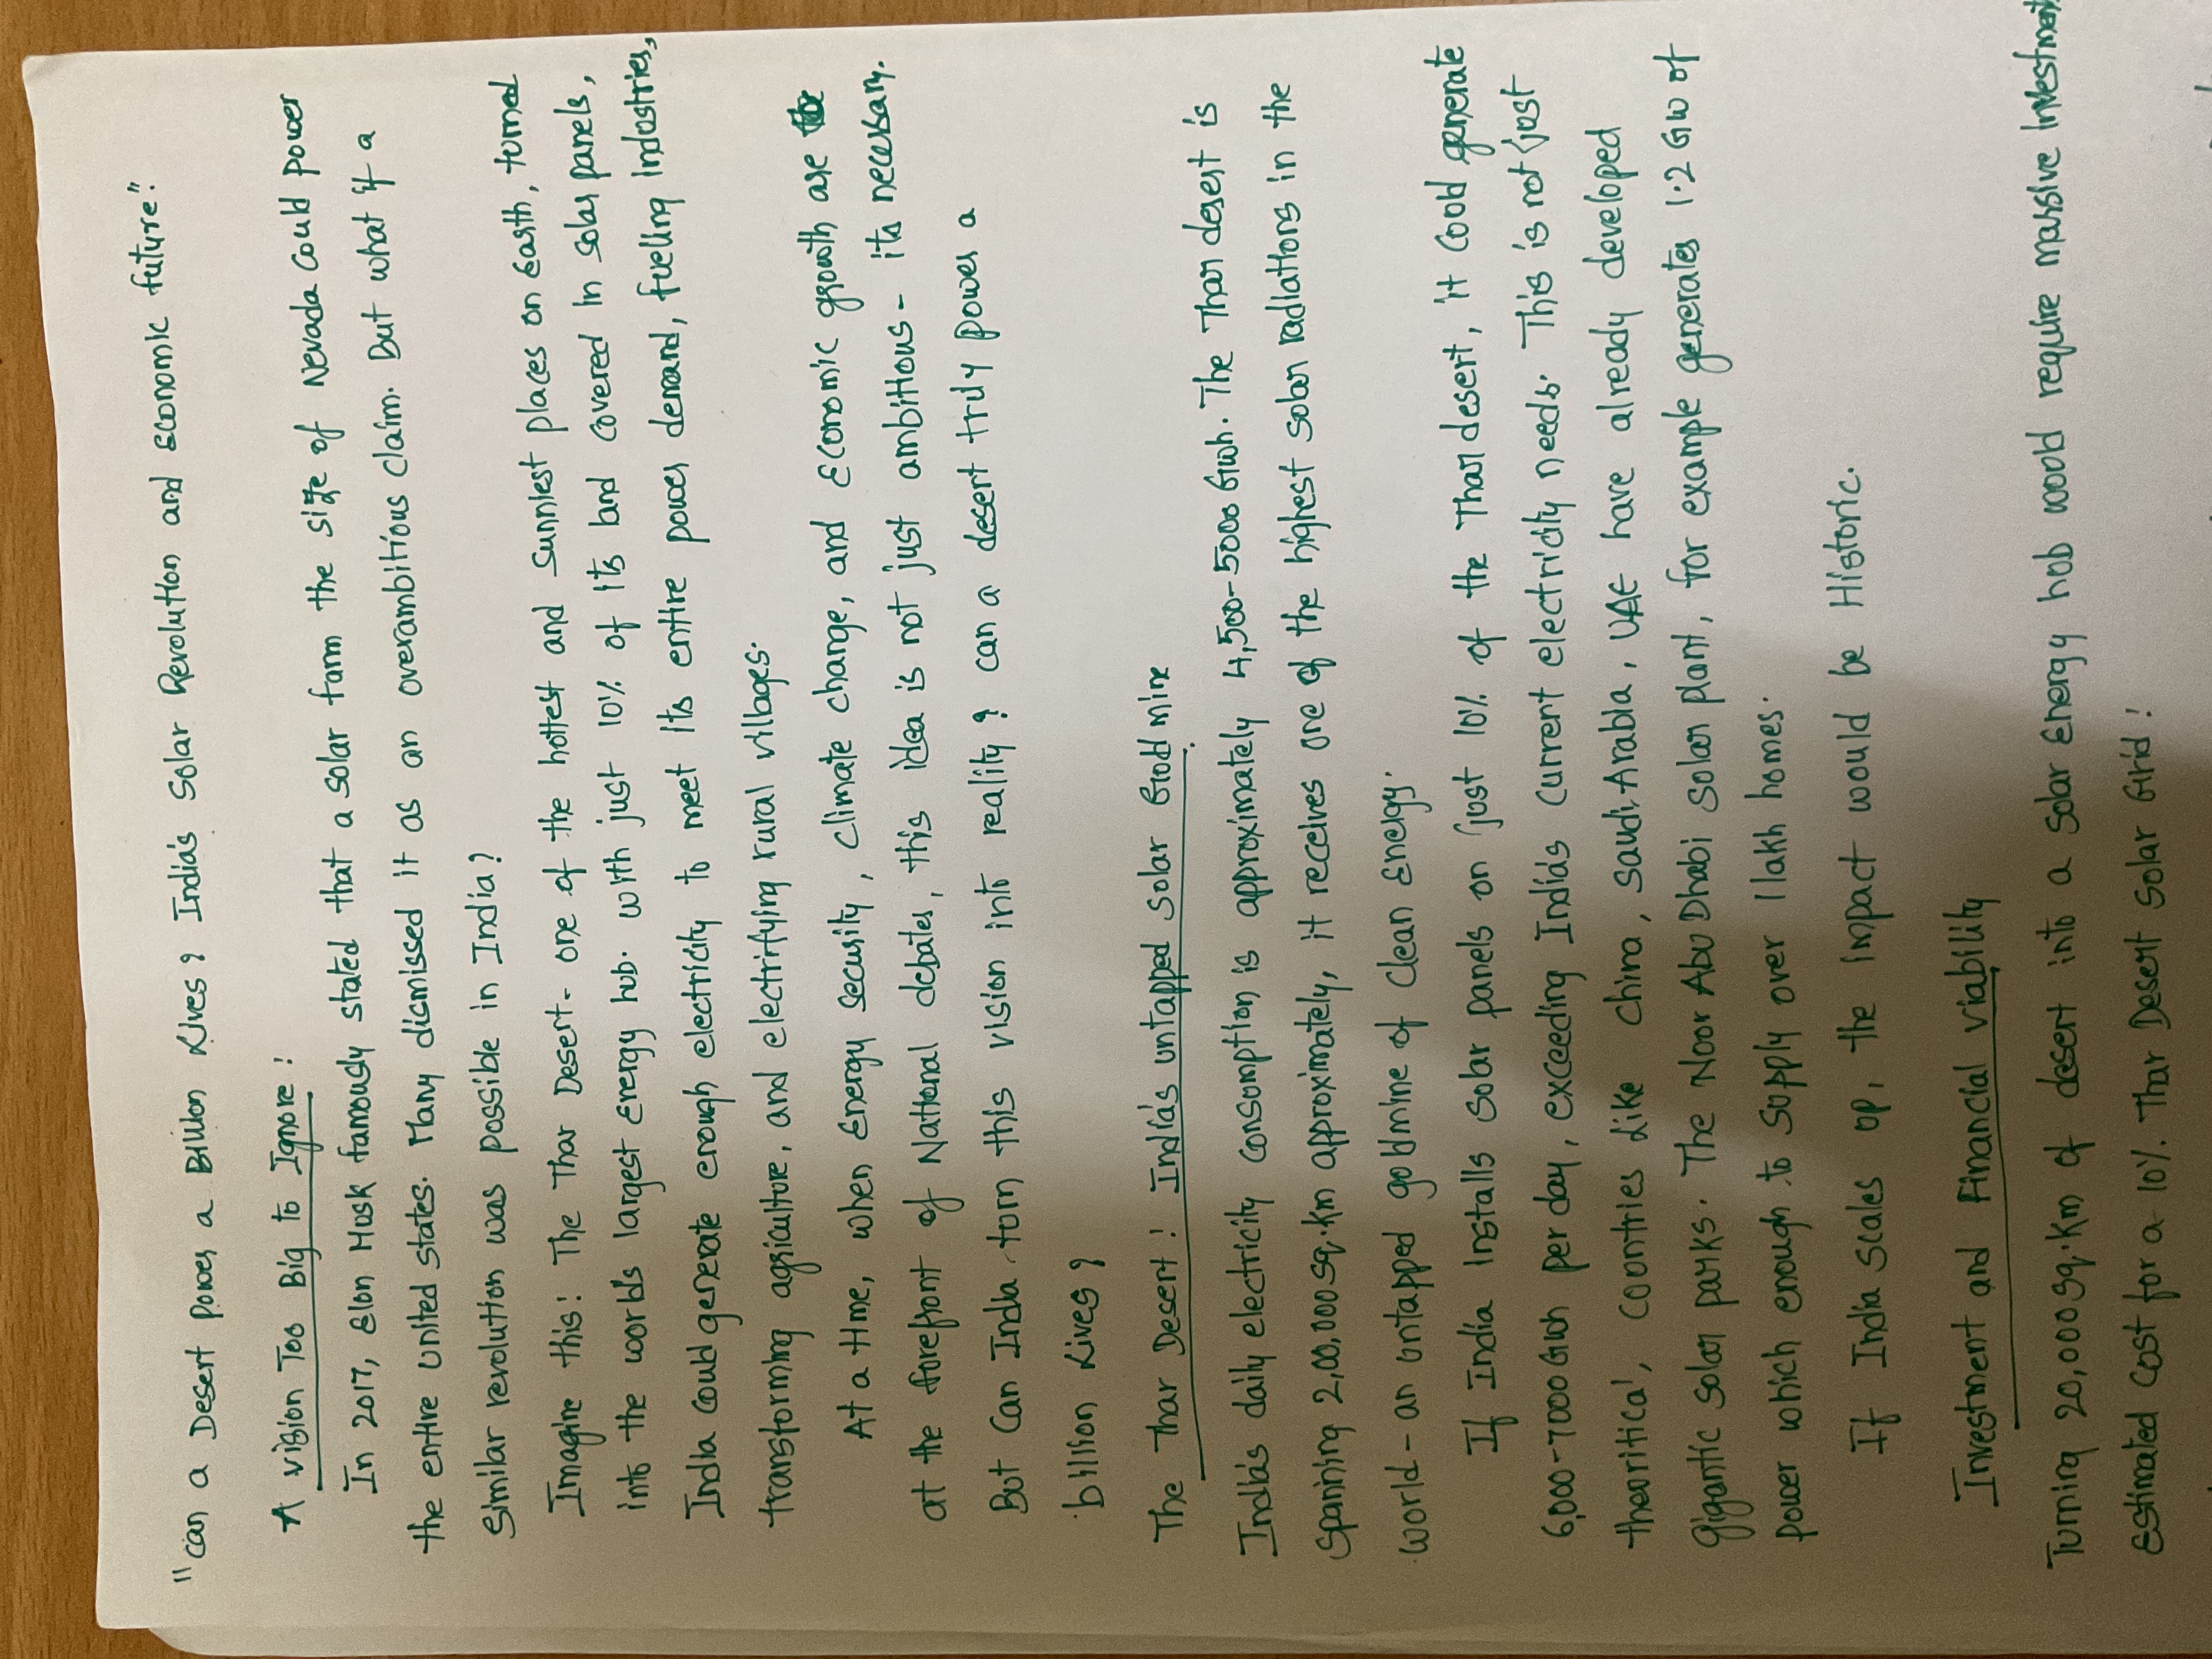 "Can a Desert Power a Billion Lives? India's Solar Revolution and Economic future".
A vision Too Big to Ignore!
In 2017, Elon Musk famously stated that a solar farm the size of Nevada could power
the entire united states. Many dismissed it as an overambitious claim. But what if a
Similar revolution was possible in India?
Imagine this: The Thar Desert- one of the hottest and sunniest places on Earth, turned
into the world's largest energy hub. with just 10% of its land covered in solar panels,
India could generate enough electricity to meet its entire power demand, fuelling Industries,
transforming agriculture, and electrifying rural villages.
At a time, when energy security, climate change, and Economic growth are
at the forefront of National debates, this idea is not just ambitious- its necessary.
But can India turn this vision into reality? can a desert truly power a
billion Lives?
The Thar Desert: India's untapped solar Goldmine
India's daily electricity consumption is approximately 4,500-5000 Gwh. The Thar desert is
Spanning 2,00,000 sq.km approximately, it receives one of the highest solar radiations in the
world- an untapped goldmine of clean Energy.
If India Installs solar panels on just 10% of the Thar desert, it could generate
6,000-7000 Gwh per day, exceeding India's current electricity needs. This is not just
theoritical, countries like China, Saudi Arabia, UAE have already developed
Gigantic solar parks. The Noor Abu Dhabi solar plant, for example generates 1.2 GW of
power which enough to supply over 1 lakh homes.
If India scales up, the impact would be Historic.
Investment and Financial viability
Turning 20,000 sq.km of desert into a solar energy hub would require massive Investment
Estimated cost for a 10%. Thar Desert Solar Grid!